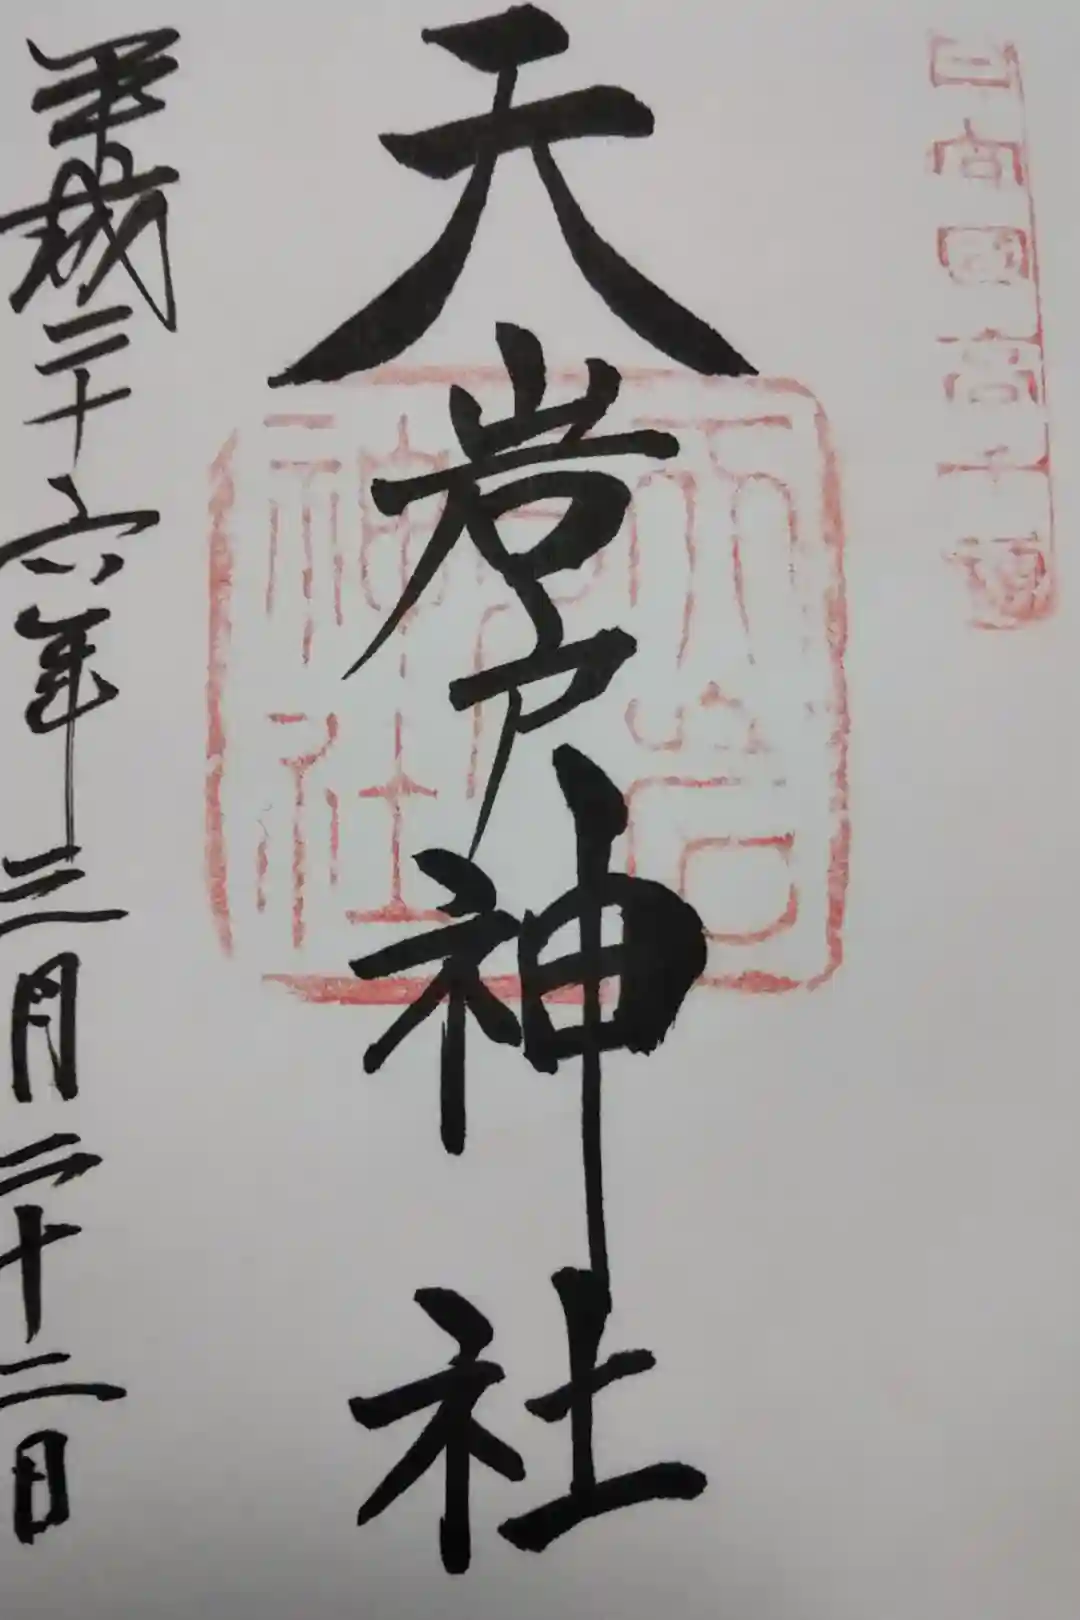 日向國高千穂
天岩戸神社
天岩戸神社
平成二十六年三月二十二日